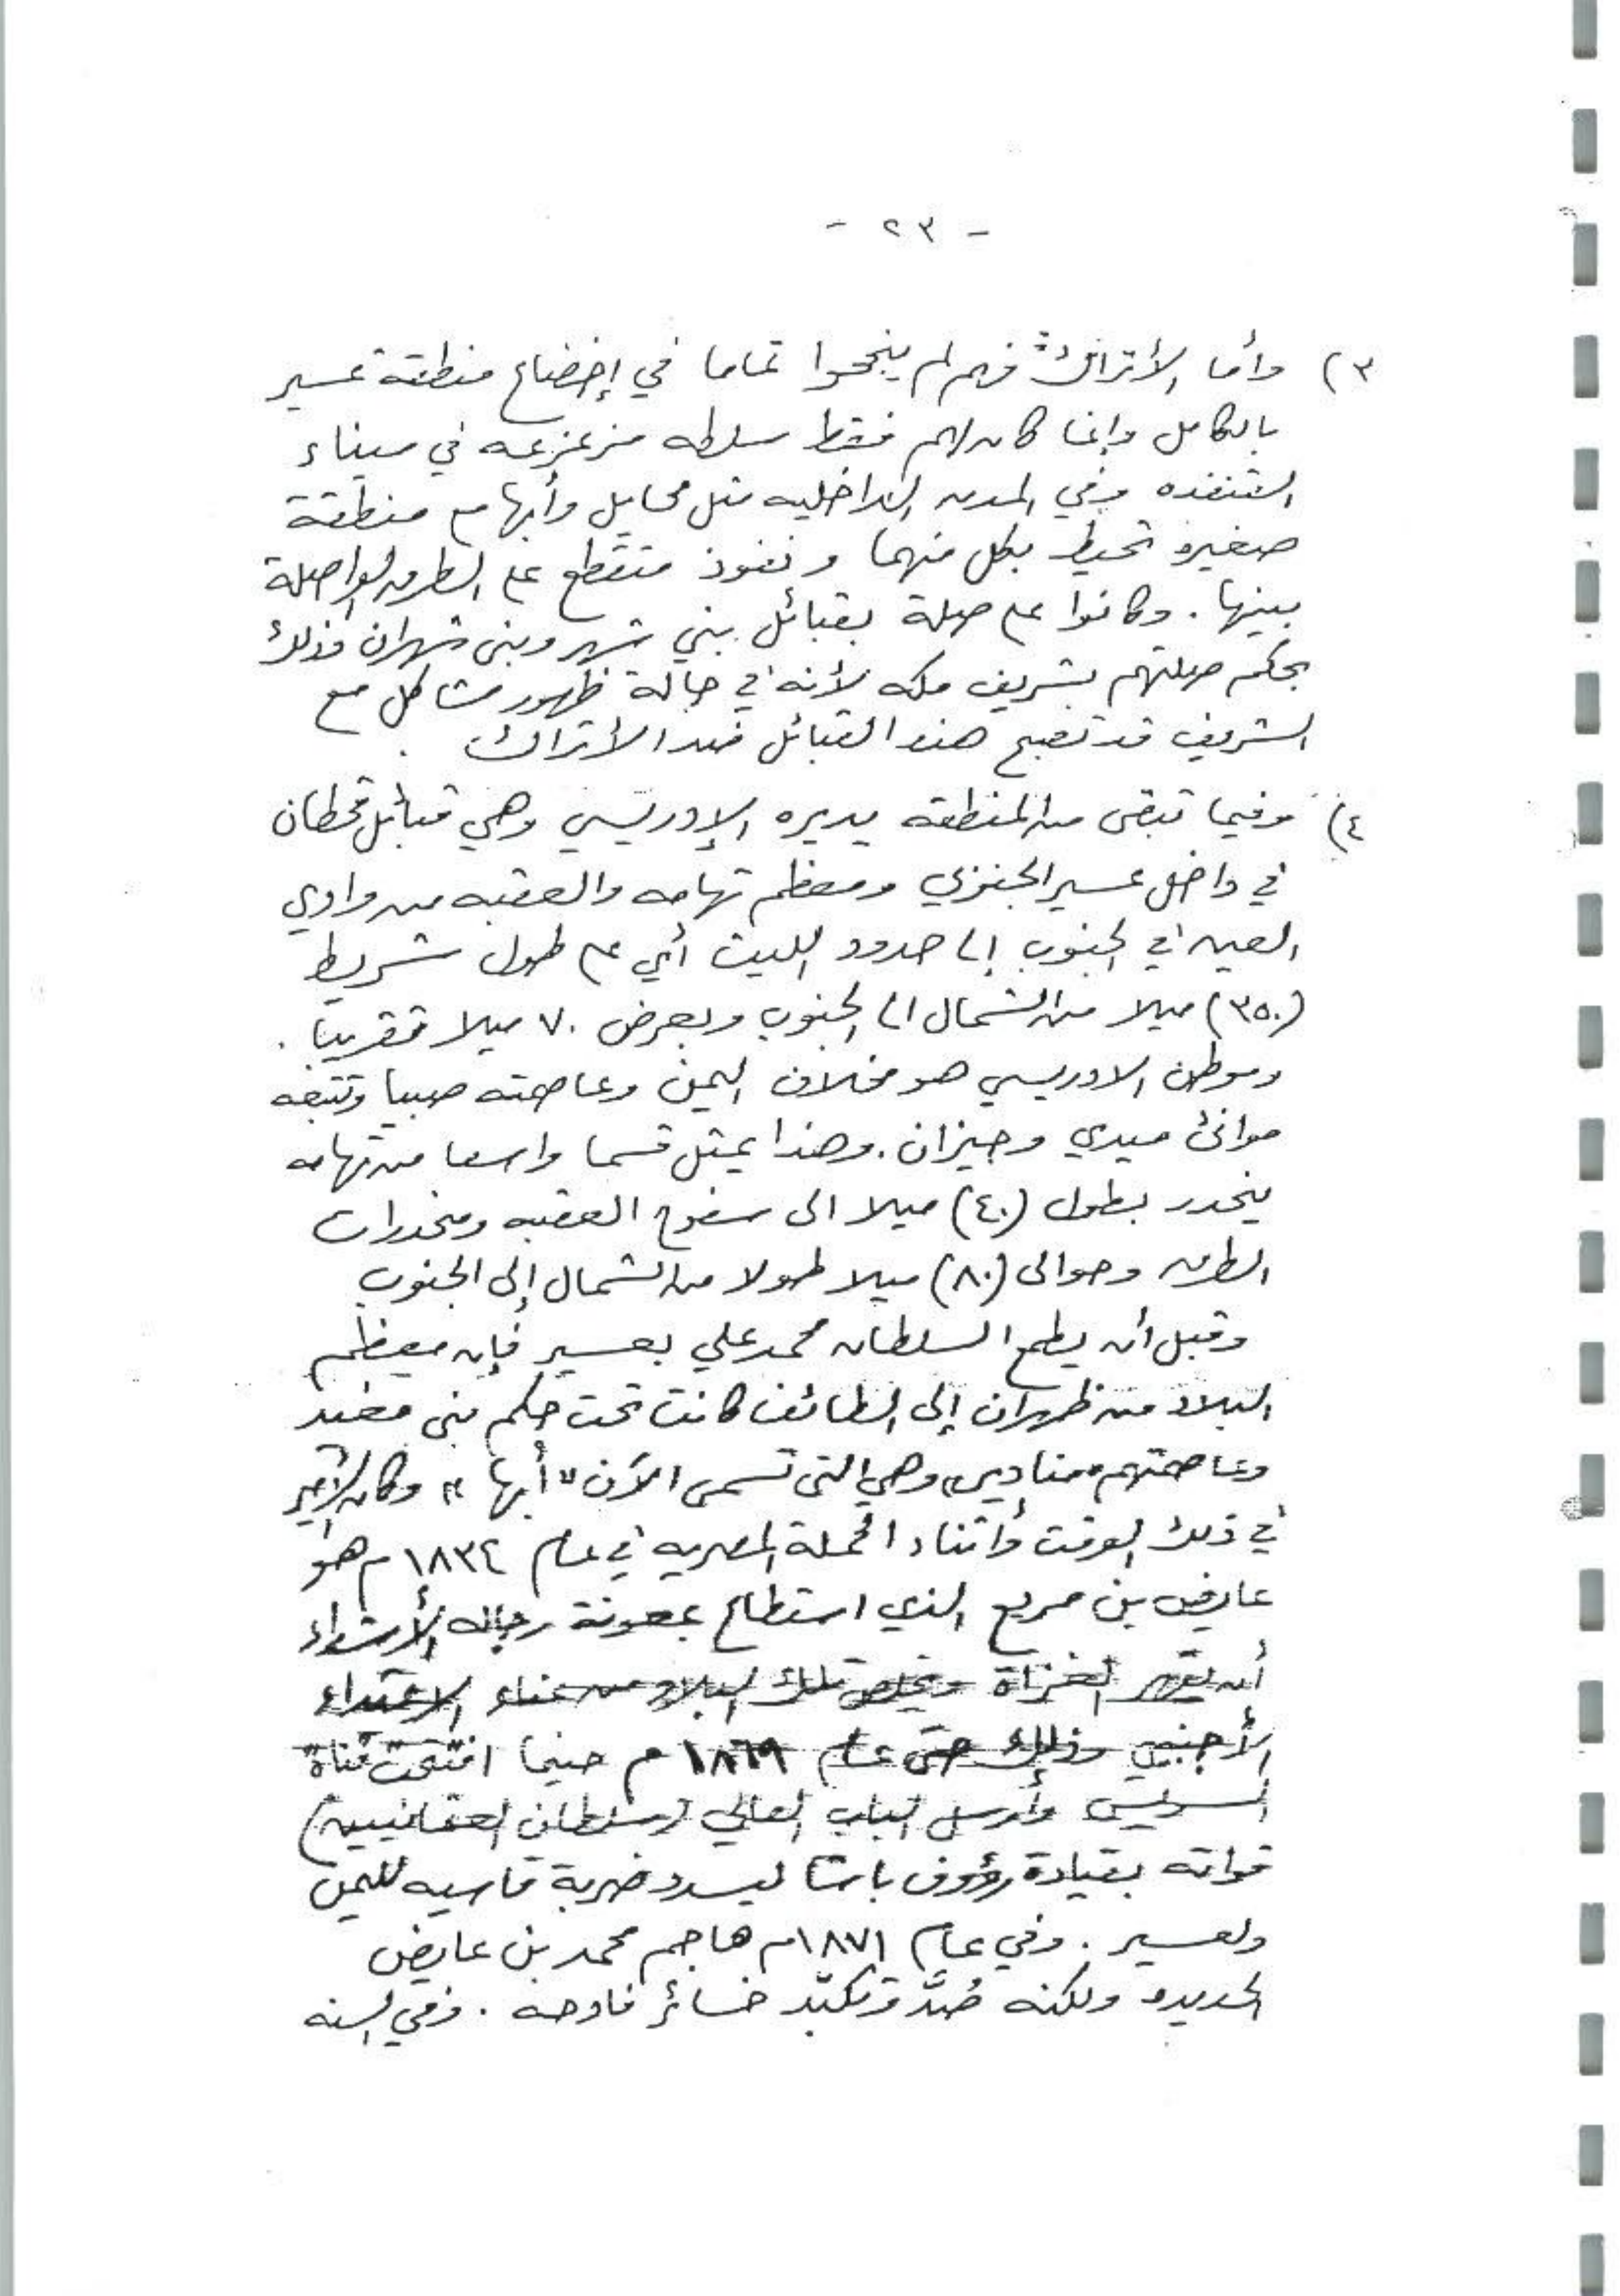 - ٢٣ -
٣) وأما الأتراك فهم لم ينجحوا تماما في إخضاع منطقة عسير
بالكامل وإنما كان لهم فقط سلطه مزعزعه في ميناء
القنفذه وفي المدن الداخليه مثل محايل وأبها مع منطقة
صغيره تحيط بكل منهما ونفوذ متقطع على الطرق الواصلة
بينها . وكانوا على صلة بقبائل بني شهر وبني شهران وذلك
بحكم صلتهم بشريف مكه لأنه في حالة ظهور مشاكل مع
الشريف قد تصبح هذه القبائل ضد الأتراك .
٤) وفيما تبقى من المنطقه يديره الإدريسي وهي قبائل قحطان
في داخل عسير الجنوبي ومعظم تهامه والعقبه من وادي
العين في الجنوب إلى حدود الليث أي على طول شريط
(٣٥٠) ميلا من الشمال الى الجنوب وبعرض ٧٠ ميلا تقريبا .
وموطن الادريسي هو مخلاف اليمن وعاصمته صبيا وتتبعه
موانئ ميدي وجيزان . وهذا يمثل قسما واسعا من تهامه
ينحدر بطول (٤٠) ميلا الى سفوح العقبه ومنحدرات
الطرق وحوالى (٨٠) ميلا طولا من الشمال إلى الجنوب
وقبل أن يطمع السلطان محمد علي بعسير فإن معظم
البلاد من ظهران إلى الطائف كانت تحت حكم بني مغيد
وعاصمتهم "مناديس" وهي التي تسمى الآن "أبها" وكان الأمير
في ذلك الوقت وأثناء الحملة المصريه في عام ١٨٣٤ م هو
عايض بن مرعي الذي استطاع بمعونة رجاله الأشداء
أن يقهر الغزاة ويخلص تلك البلاد من عناء الاعتداء
الأجنبي وذلك حتى عام ١٨٦٩ م حينما افتتحت قناة
السويس وأرسل الباب العالي (سلطان العثمانيين)
قواته بقيادة رؤوف باشا ليسدد ضربة قاسيه لليمن
ولعسير . وفي عام ١٨٧١م هاجم محمد بن عايض
الحديده ولكنه صُدَّ وتكبّد خسائر فادحه . وفي السنه